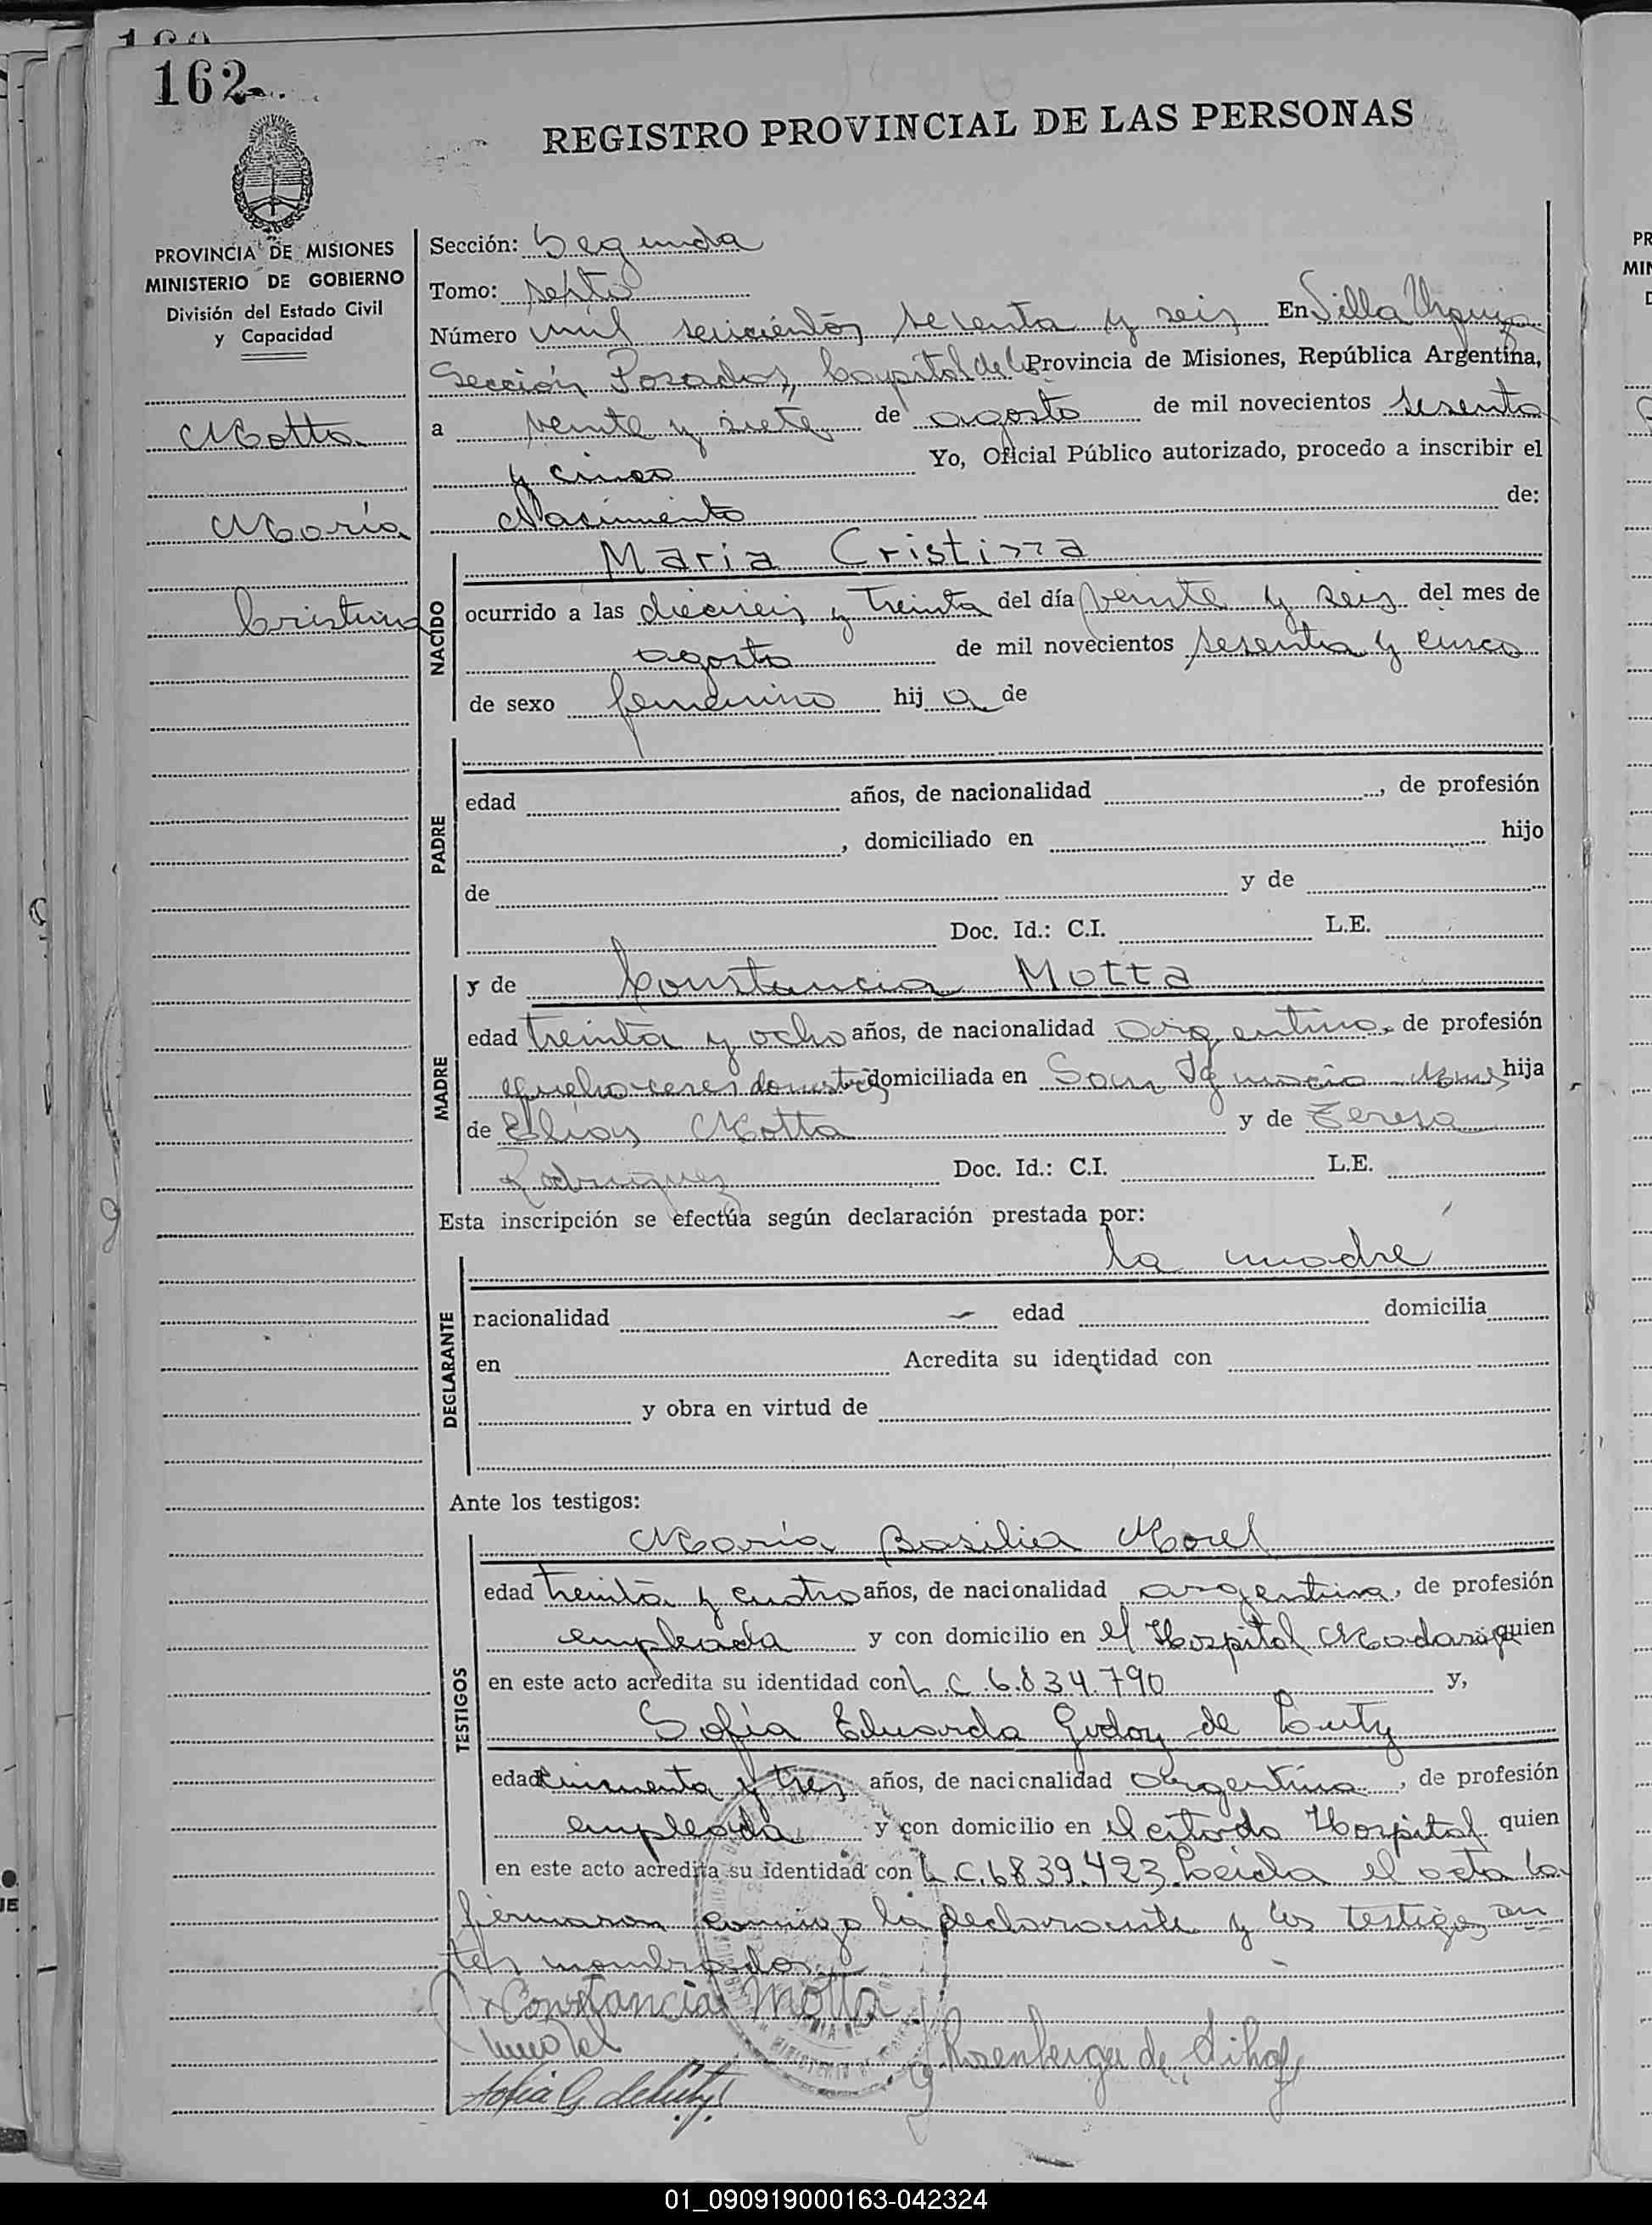 162
REGISTRO PROVINCIAL DE LAS PERSONAS
PROVINCIA DE MISIONES
MINISTERIO DE GOBIERNO
División del Estado Civil
y Capacidad
Motta
María
Cristina
Sección: Segunda
Tomo: septo
Número mil seiscientos sesenta y seis En Villa Urquiza
Sección Posadas, Capital de la Provincia de Misiones, República Argentina,
a veinte y siete de agosto de mil novecientos sesenta
y cinco Yo, Oficial Público autorizado, procedo a inscribir el
Nacimiento de:
NACIDO
Maria Cristina
ocurrido a las dieciseis y treinta del día veinte y seis del mes de
agosto de mil novecientos sesenta y cinco
de sexo femenino hij a de
PADRE
edad años, de nacionalidad , de profesión
, domiciliado en hijo
de y de
Doc. Id.: C.I. L.E.
MADRE
y de Constancia Motta
edad treinta y ocho años, de nacionalidad argentina, de profesión
quehaceres domiciliada en San Ignacio hija
de Elías Motta y de Teresa
Rodriguez Doc. Id.: C.I. L.E.
Esta inscripción se efectúa según declaración prestada por:
la madre
DEGLARANTE
nacionalidad edad domicilia
en Acredita su identidad con
y obra en virtud de
Ante los testigos:
TESTIGOS
María Basilia Morel
edad treinta y cuatro años, de nacionalidad argentina, de profesión
empleada y con domicilio en el Hospital Madariaga quien
en este acto acredita su identidad con L.C. 6.834.790 y,
Sofía Eduarda Godoy de
edad cincuenta y tres años, de nacionalidad argentina, de profesión
empleada y con domicilio en el citado Hospital quien
en este acto acredita su identidad con L.C. 6839.423. Leida el acta la
firmaron conmigo la declarante y los testigos an
tes nombrados
Constancia Motta
Rosenberger de
Sofia G de
01_090919000163-042324